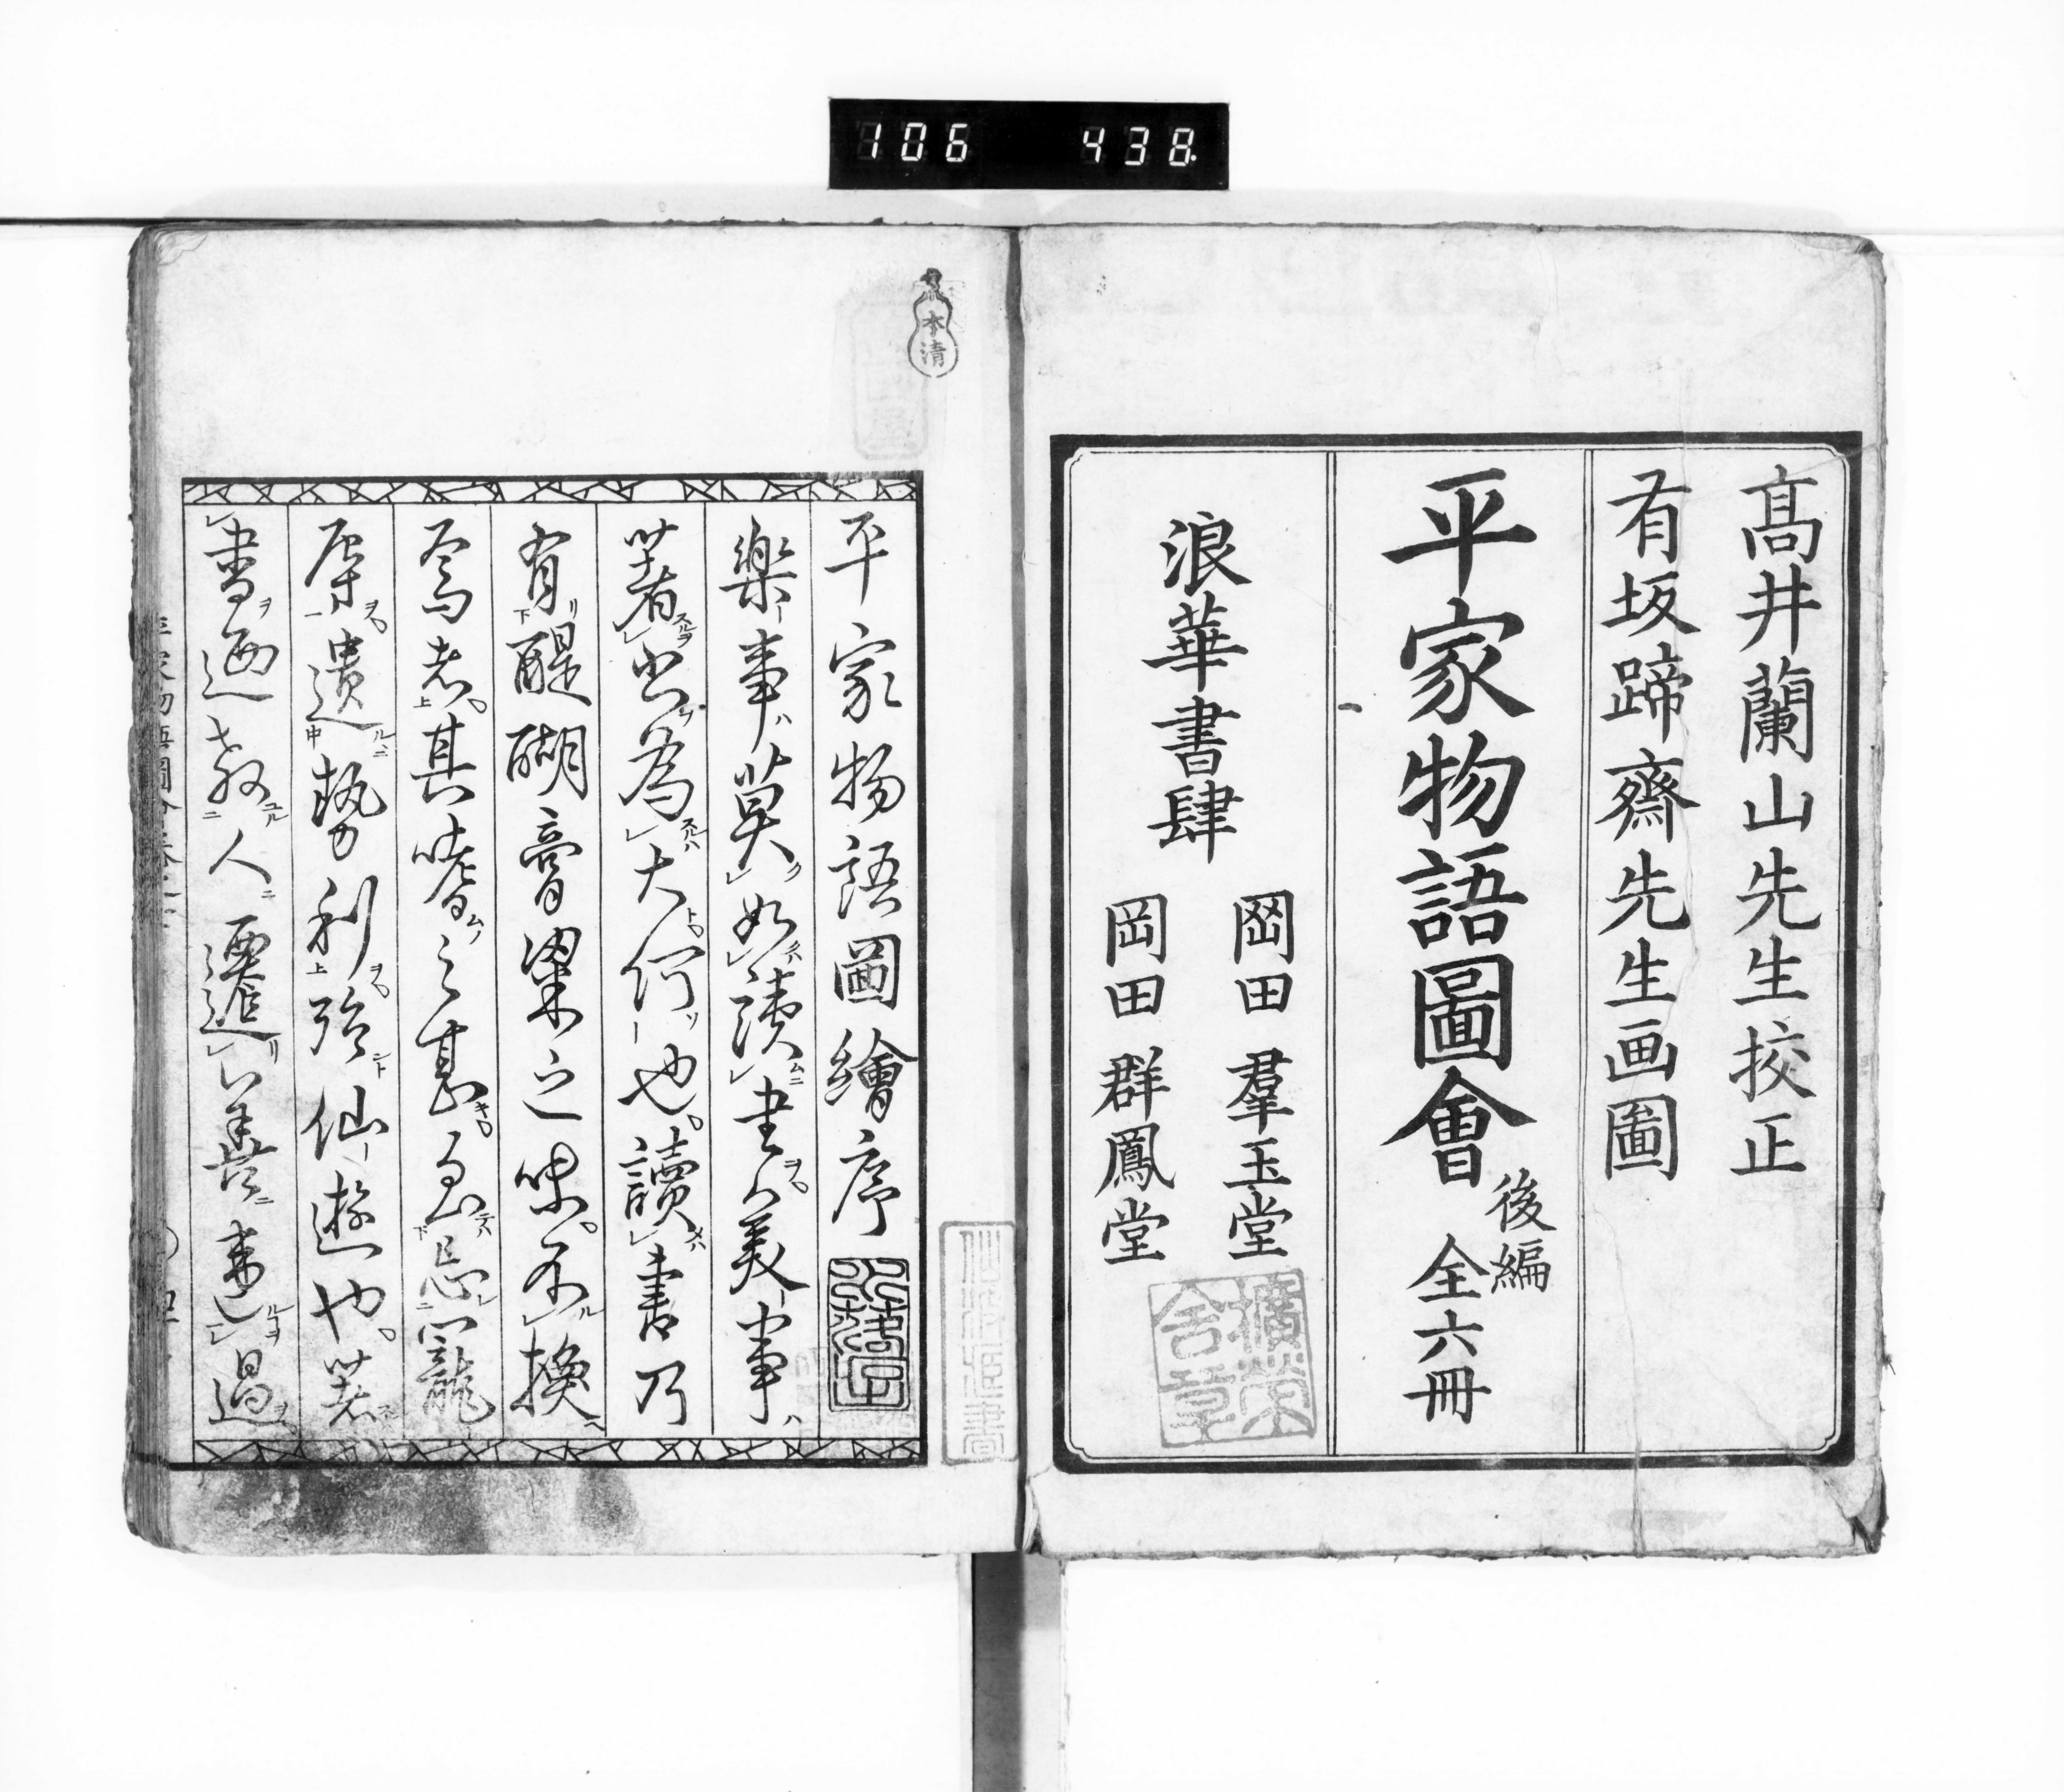 106 438
髙井蘭山先生挍正
有坂蹄齋先生画圖
平家物語圖會 後編 全六冊
浪華書肆
岡田羣玉堂
岡田群鳳堂
本清
平家物語圖繪序
樂事莫如讀書美事
著書為大何也讀書乃
有醍醐膏粱之味不換
焉者其嗜之甚忘寵
辱遺勢利強仙遊也著
書遺教人遷善